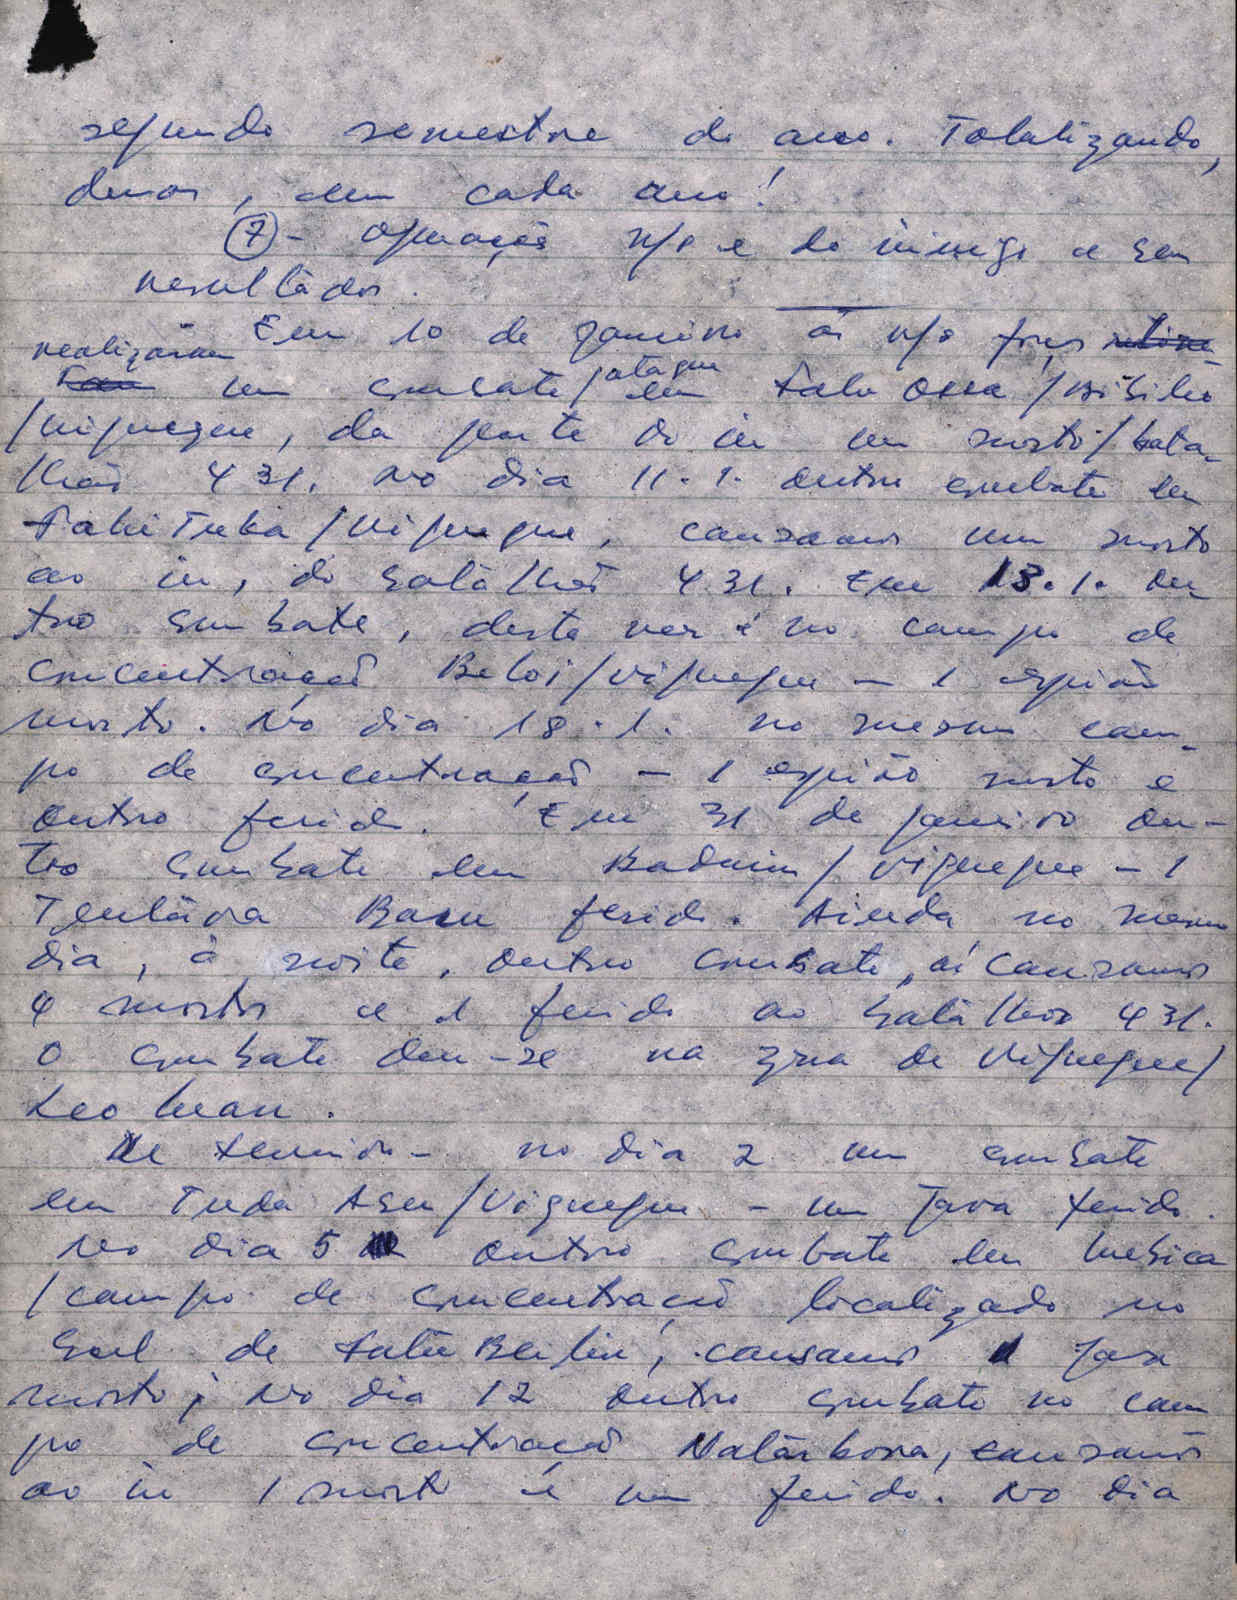 segundo semestre do ano. Totalizando,
duas, em cada ano!
⑦ - Operação n/s e do inimigo e seus
resultados.
Em 10 de Janeiro as n/s forças
realizaram um combate/ataque em Falu Ossa/Bibileo
/Viqueque, da parte do in um morto/bata-
lhão 431. No dia 11.1. outro combate em
Fahi Tuka/Viqueque, causamos um morto
ao in, do batalhão 431. Em 13.1. ou
tro combate, desta vez é no campo de
concentração Beloi/Viqueque - 1 espião
morto. No dia 18.1. no mesmo cam-
po de concentração - 1 espião morto e
outro ferido. Em 31 de janeiro ou-
tro combate em /Viqueque - 1
ferido. Ainda no mesmo
dia, à noite, outro combate, aí causamos
4 mortos e 1 ferido ao batalhão 431.
O combate deu-se na zona de Viqueque/

no dia 2 um combate
em Tuda Asu/Viqueque - um Java ferido.
No dia 5 outro combate em
/campo de concentração localizado no
Sul de Fatu Berliu, causamos 1 Java
morto; No dia 12 outro combate no cam
po de concentração Natarbora, causamos
ao in 1 morto e um ferido. No dia